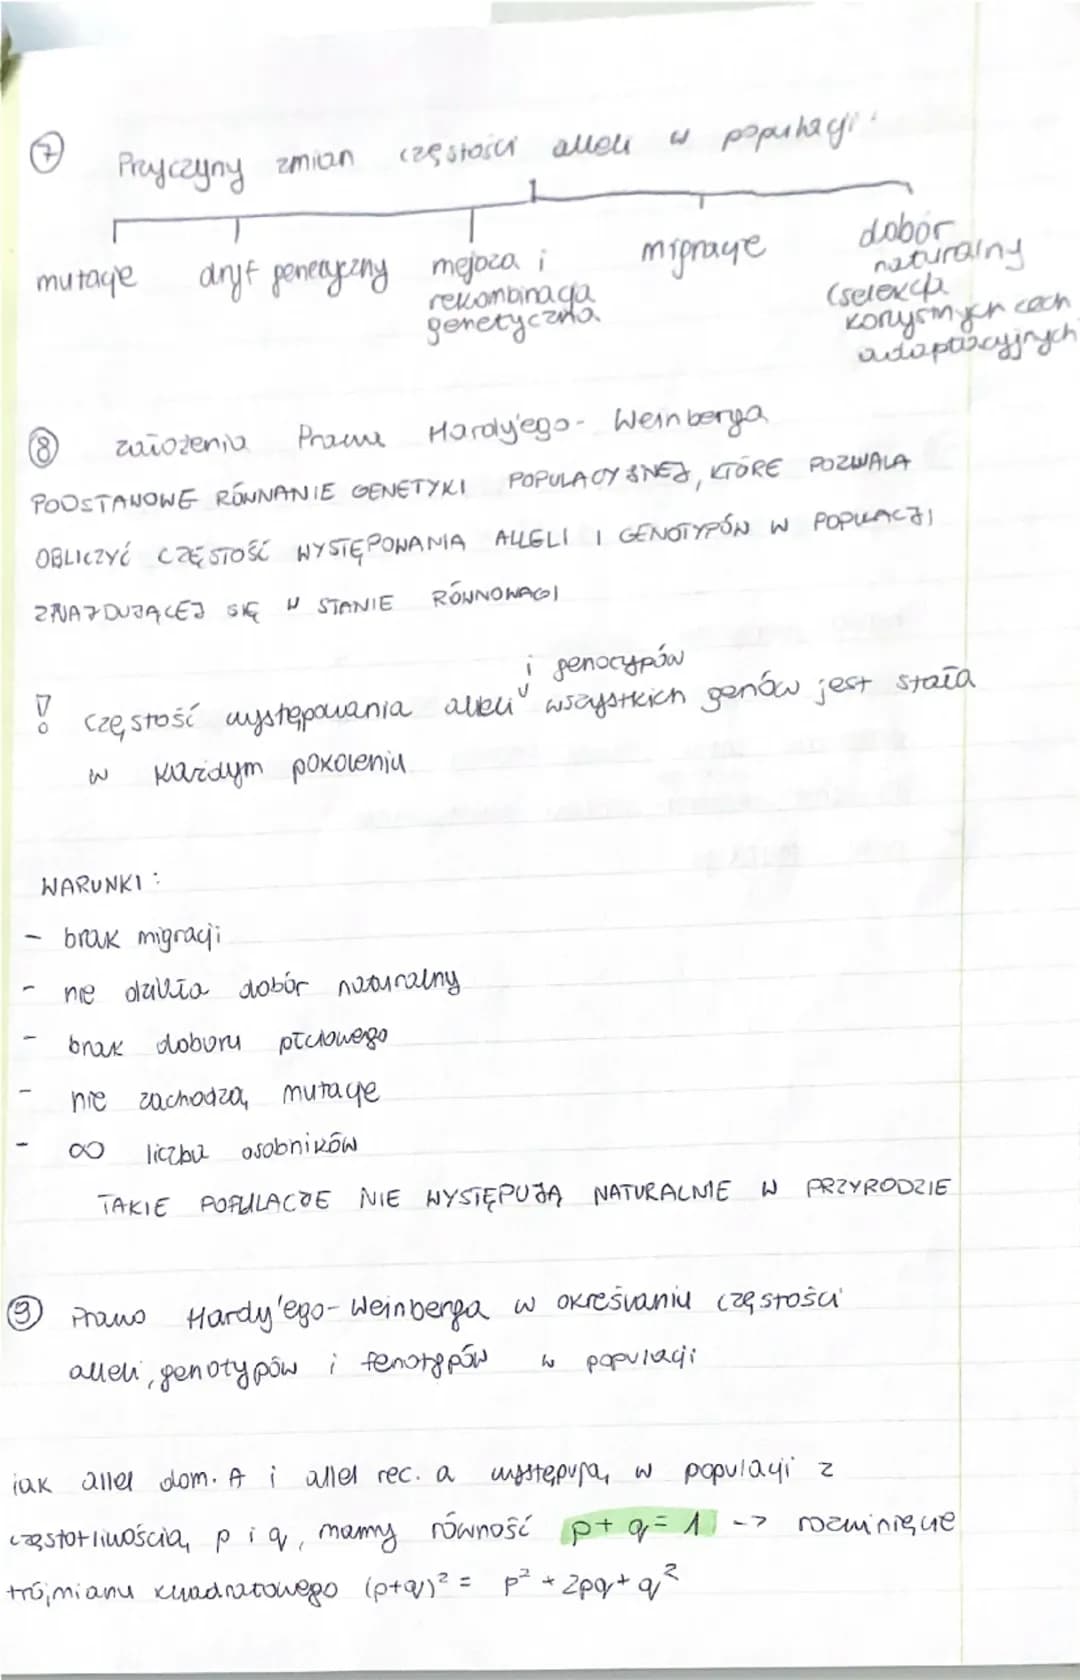 7 Przyczyny zmian częstości alleli w populacji:
mutacje dryf genetyczny mejoza i rekombinacja genetyczna migracje dobór naturalny (selekcja korzystnych cech adaptacyjnych
8 założenia Prawa Hardy'ego-Weinberga
PODSTAWOWE RÓWNANIE GENETYKI POPULACYJNEJ, KTÓRE POZWALA
OBLICZYĆ CZĘSTOŚĆ WYSTĘPOWANIA ALLELI I GENOTYPÓW W POPULACJI
ZNAJDUJĄCEJ SIĘ W STANIE RÓWNOWAGI
i genotypów
! częstość występowania alleli wszystkich genów jest stała
w każdym pokoleniu
WARUNKI:
- brak migracji
- nie działa dobór naturalny
- brak doboru płciowego
- nie zachodzą mutacje
- ∞ liczba osobników
TAKIE POPULACJE NIE WYSTĘPUJĄ NATURALNIE W PRZYRODZIE
9 Prawo Hardy'ego-Weinberga w określaniu częstości
alleli, genotypów i fenotypów w populacji
jak allel dom. A i allel rec. a występują w populacji z
częstotliwością p i q, mamy równość p+q=1 -> rozwinięcie
trójmianu kwadratowego (p+q)² = p² + 2pq + q²